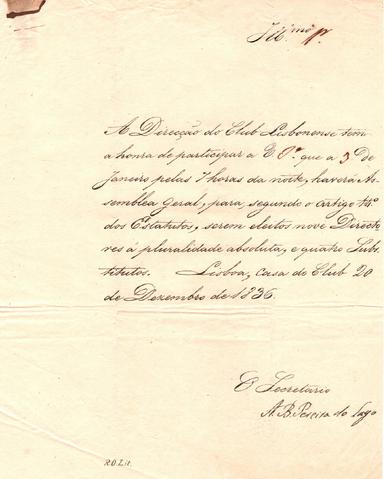 Ill.mo Sr.
A Direcção do Club Lisbonense tem
a honra de participar a V. Sa. que a 3 de
Janeiro pelas 7 horas da noite, haverá As-
semblea Geral, para, segundo o artigo 14.º
dos Estatutos, serem eleitos nove Directo-
res á pluralidade absoluta, e quatro Subs-
titutos. Lisboa, casa do Club 20
de Dezembro de 1836.
O Secretario
A. B. Pereira do Lago
R.O. Lit.